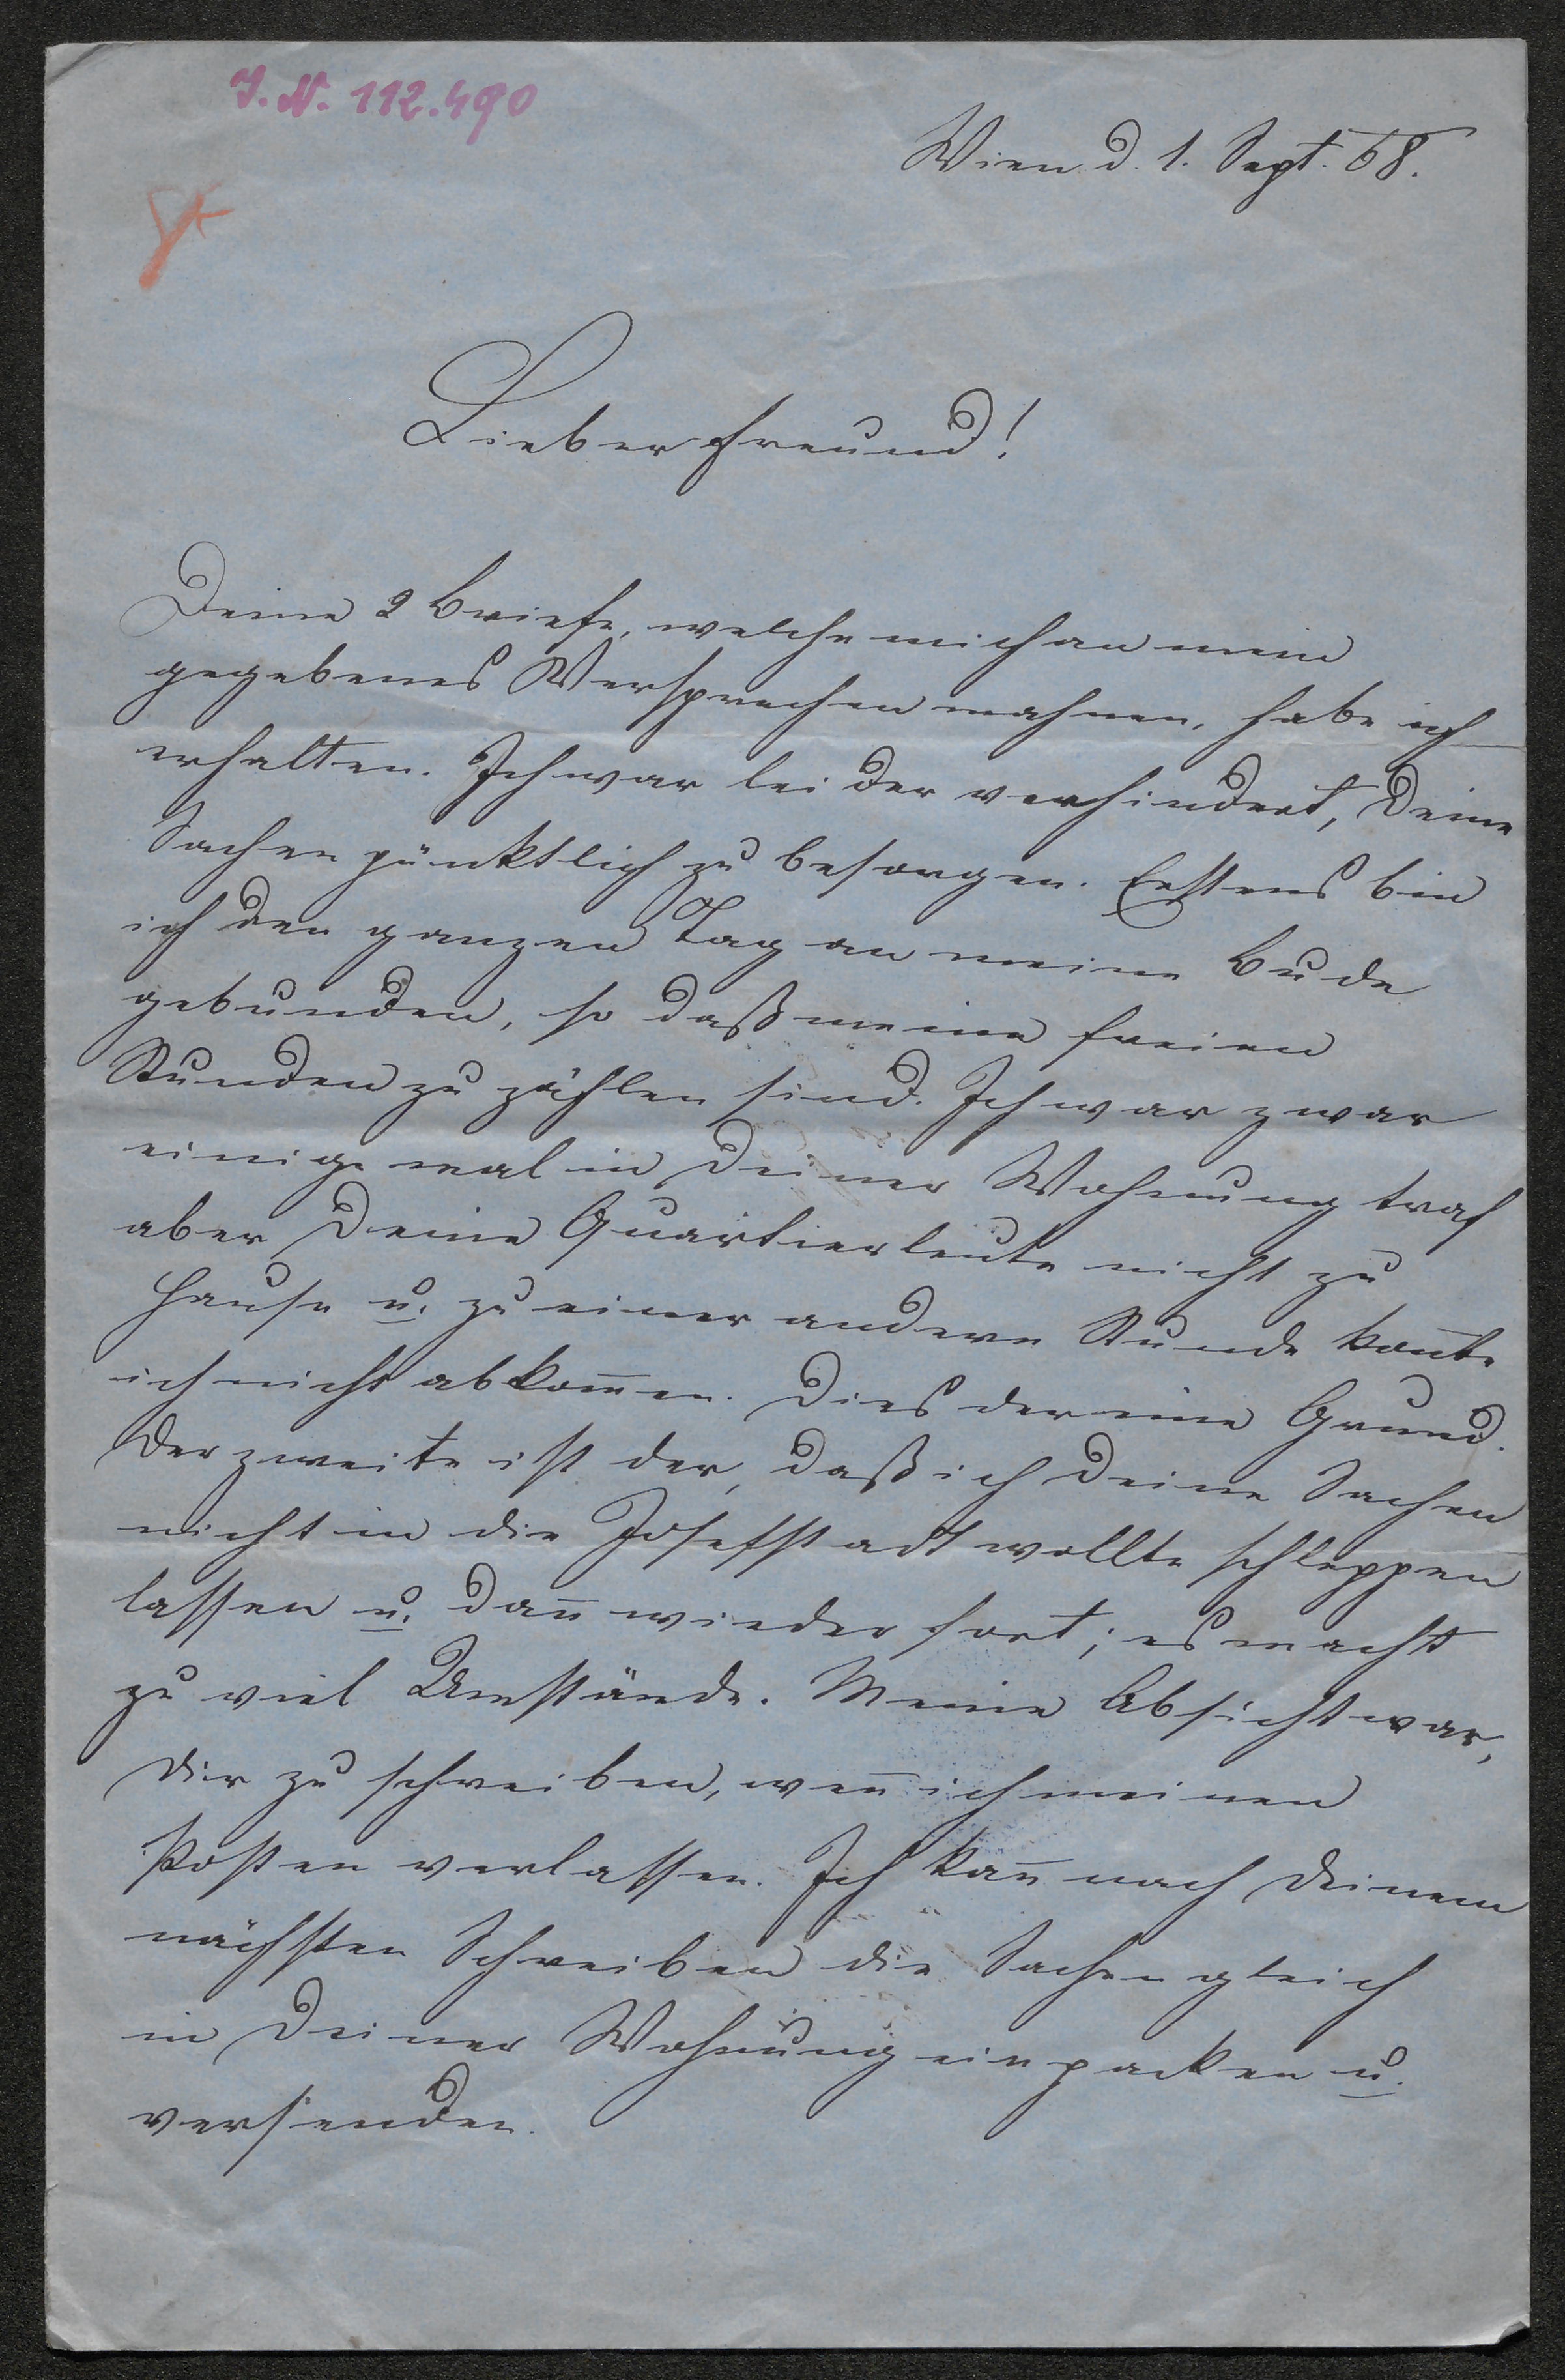 I. N. 112.490
Wien d. 1. Sept. 68.
Lieber Freund!
Deine 2 Briefe, welche mich an mein
gegebenes Versprechen mahnen, habe ich
erhalten. Ich war leider verhindert, Deine
Sachen pünktlich zu besorgen. Erstens bin
ich den ganzen Tag an meine Bude
gebunden, so daß meine freien
Stunden zu zählen sind. Ich war zwar
einige mal in Deiner Wohnung traf
aber Deine Quartierleute nicht zu
Hause u. zu einer andern Stunde kon̄te
ich nicht abkom̄en. Dies der eine Grund.
Der zweite ist der, daß ich Deine Sachen
nicht in die Josefstadt wollte schleppen
lassen u. dan̄ wieder fort; es macht
zu viel Umstände. Meine Absicht war,
Dir zu schreiben, wen̄ ich meinen
Posten verlassen. Ich kan̄ nach Deinem
nächsten Schreiben die Sachen gleich
in Deiner Wohnung einpacken u.
versenden.